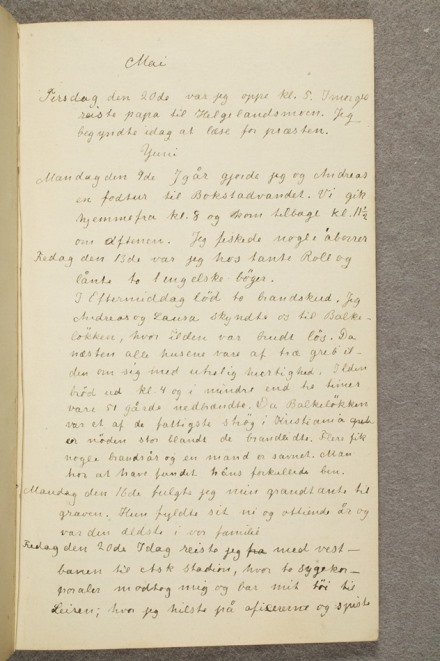 Mai
Torsdag den 20de var jeg oppe kl. 5. Imorges
reiste papa til Helgelandsmoen. Jeg
begyndte idag at læse for præsten.
Juni
Mandag den 9de Igår gjorde jeg og Andreas
en fodtur til Bokstadvandet. Vi gik
hjemmefra kl. 8 og kom tilbage kl. 11½
om Aftenen. Jeg fiskede nogle aborrer
Fredag den 13de var jeg hos tante Roll og
lånte to engelske bøger.
I Eftermiddag lød to brandskud. Jeg
Andreas og Laura skyndte os til Balke-
løkken, hvor ilden var brudt løs. Da
næsten alle husene vare af træ greb il-
den om sig med utrolig hurtighed. Ilden
brød ud kl. 4 og i mindre end to timer
vare 51 gårde nedbrændte. Da Balkeløkken
var et af de fattigste strøg i Kristiania
er nøden stor blandt de brandlidte. Flere fik
nogle brandsår og en mand er savnet. Man
tror at have fundet hans forkullede ben.
Mandag den 16de fulgte jeg min grandtante til
graven. Hun fyldte sit ni og ottiende år og
var den ældste i vor familie
Fredag den 20de Idag reiste jeg fra med vest-
banen til Ask stadion, hvor to sygekor-
poraler modtog mig og bar mit töi til
Leiren; hvor jeg hilste på oficererne og spiste